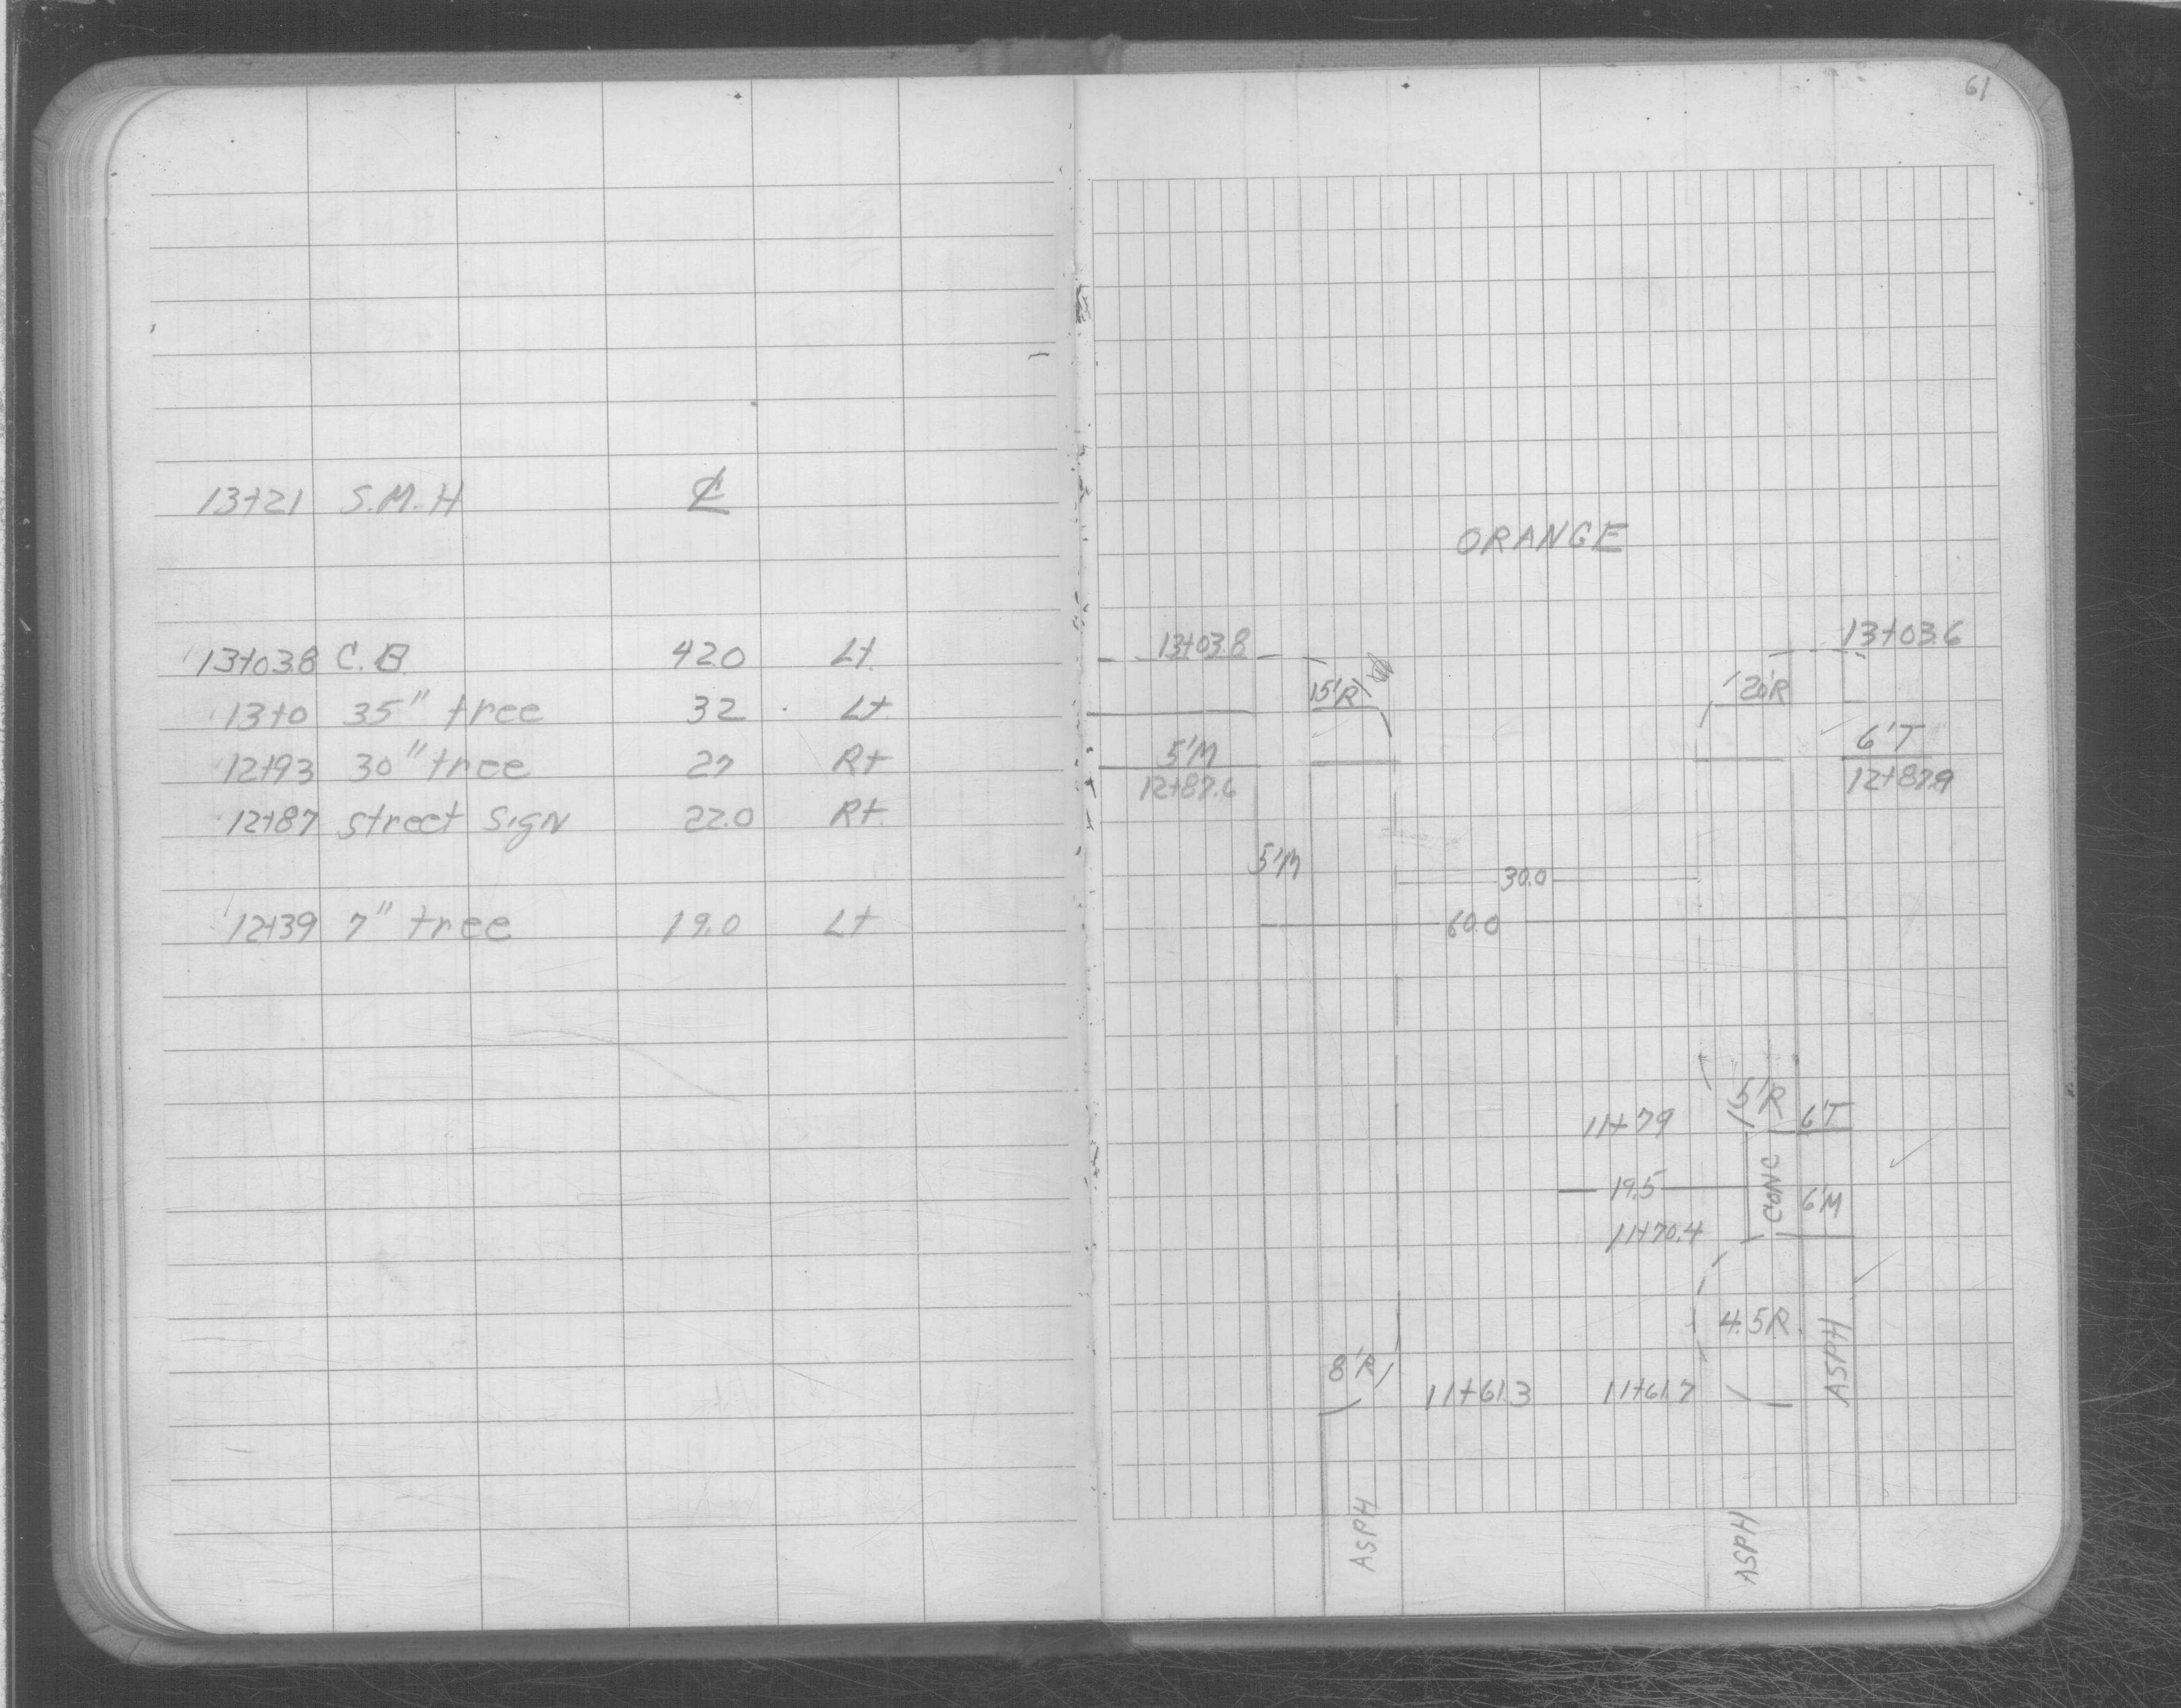 13+21 S.M.H ℄
13+03.8 C.B. 42.0 Lt.
13+0 35" tree 32 Lt.
12+93 30" tree 27 Rt
12+87 street SigN 22.0 Rt.
12+39 7" tree 19.0 Lt
61
ORANGE
13+03.8 13+03.6
15'R 20'R
5'M 6'T
12+87.6 12+87.9
5'M 30.0
60.0
11+79 5'R 6'T
19.5 CONC 6'M
11+70.4
4.5R ASPH
8'R 11+61.3 11+61.7
ASPH ASPH